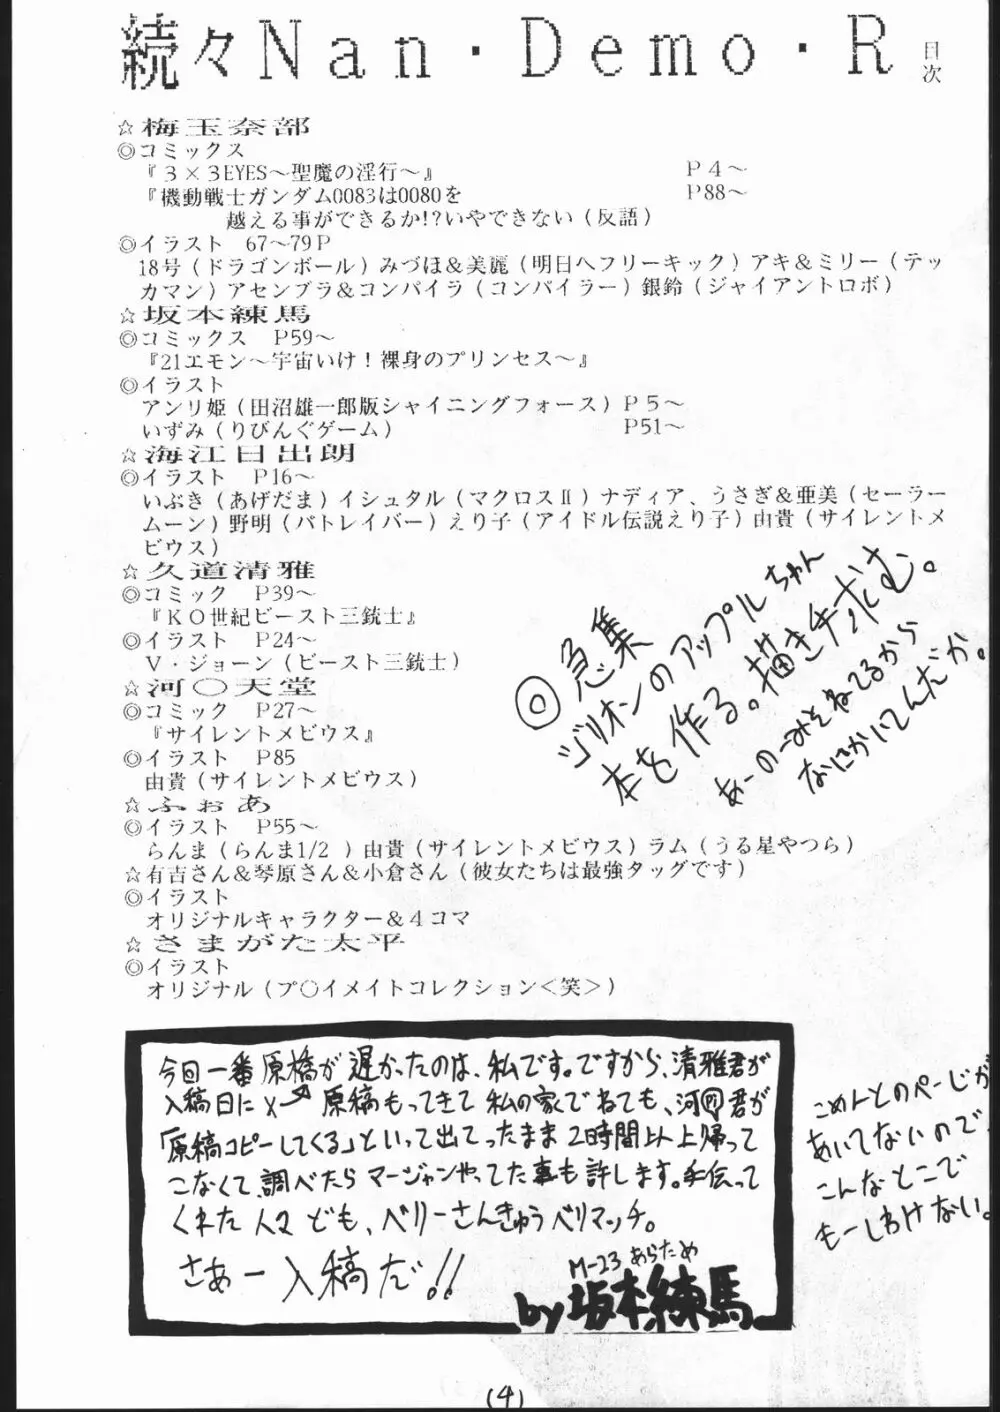 続々Nan・Demo・R 目次
☆梅玉奈部
◎コミックス
『3×3EYES〜聖魔の淫行〜』 P4〜
『機動戦士ガンダム0083は0080を P88〜
越える事ができるか!?いやできない(反語)
◎イラスト 67〜79P
18号(ドラゴンボール)みづほ&美麗(明日へフリーキック)アキ&ミリー(テッ
カマン)アセンブラ&コンパイラ(コンパイラー)銀鈴(ジャイアントロボ)
☆坂本練馬
◎コミックス P59〜
『21エモン〜宇宙いけ!裸身のプリンセス〜』
◎イラスト
アンリ姫(田沼雄一郎版シャイニングフォース)P5〜
いずみ(りびんぐゲーム) P51〜
☆海江日出朗
◎イラスト P16〜
いぶき(あげだま)イシュタル(マクロスⅡ)ナディア、うさぎ&亜美(セーラー
ムーン)野明(パトレイバー)えり子(アイドル伝説えり子)由貴(サイレントメ
ビウス)
☆久道清雅
◎コミック P39〜
『KO世紀ビースト三銃士』
◎イラスト P24〜
V・ジョーン(ビースト三銃士)
☆河○天堂
◎コミック P27〜
『サイレントメビウス』
◎イラスト P85
由貴(サイレントメビウス)
☆ふぉあ
◎イラスト P55〜
らんま(らんま1/2 )由貴(サイレントメビウス)ラム(うる星やつら)
☆有吉さん&琴原さん&小倉さん(彼女たちは最強タッグです)
◎イラスト
オリジナルキャラクター&4コマ
☆さまがた太平
◎イラスト
オリジナル(プ○イメイトコレクション<笑>)
◎急集
ジリオンのアップルちゃん
本を作る。描き手求む。
あーのーみそねてるから
なにかいてんだか。
今回一番原稿が遅かったのは、私です。ですから、清雅君が
入稿日に 原稿もってきて私の家でねても、河 君が
「原稿コピーしてくる」といって出てったまま2時間以上帰って
こなくて、調べたらマージャンやってた事も許します。手伝って
くれた人々ども、ベリーさんきゅうベリマッチ。
さあー入稿だ!!
M-23あらため
by坂本練馬
こめんとのぺーじが
あいてないので、
こんなとこで
もーしわけない。
(4)